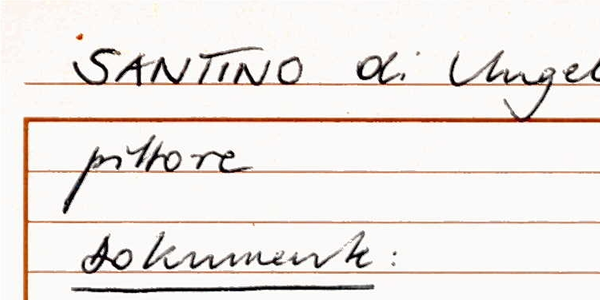 SANTINO di Ungel
pittore
Dokumente: